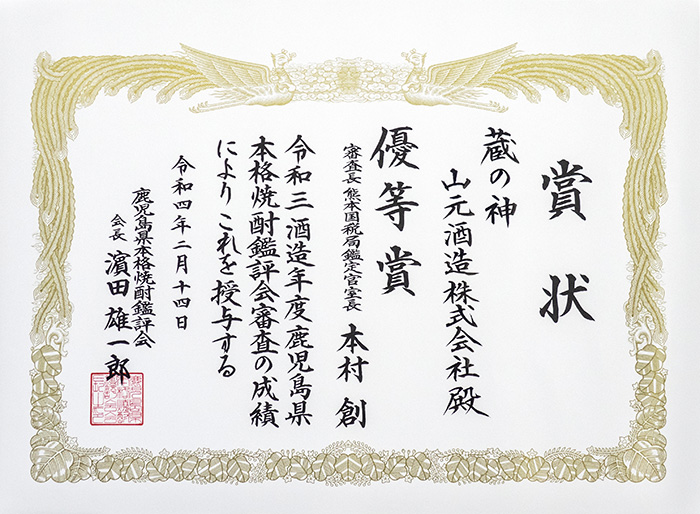 賞状
蔵の神
山元酒造株式会社殿
優等賞
審査長 熊本国税局鑑定官室長 本村 創
令和三酒造年度鹿児島県
本格焼酎鑑評会審査の成績
によりこれを授与する
令和四年二月十四日
鹿児島県本格焼酎鑑評会
会長 濵田雄一郎